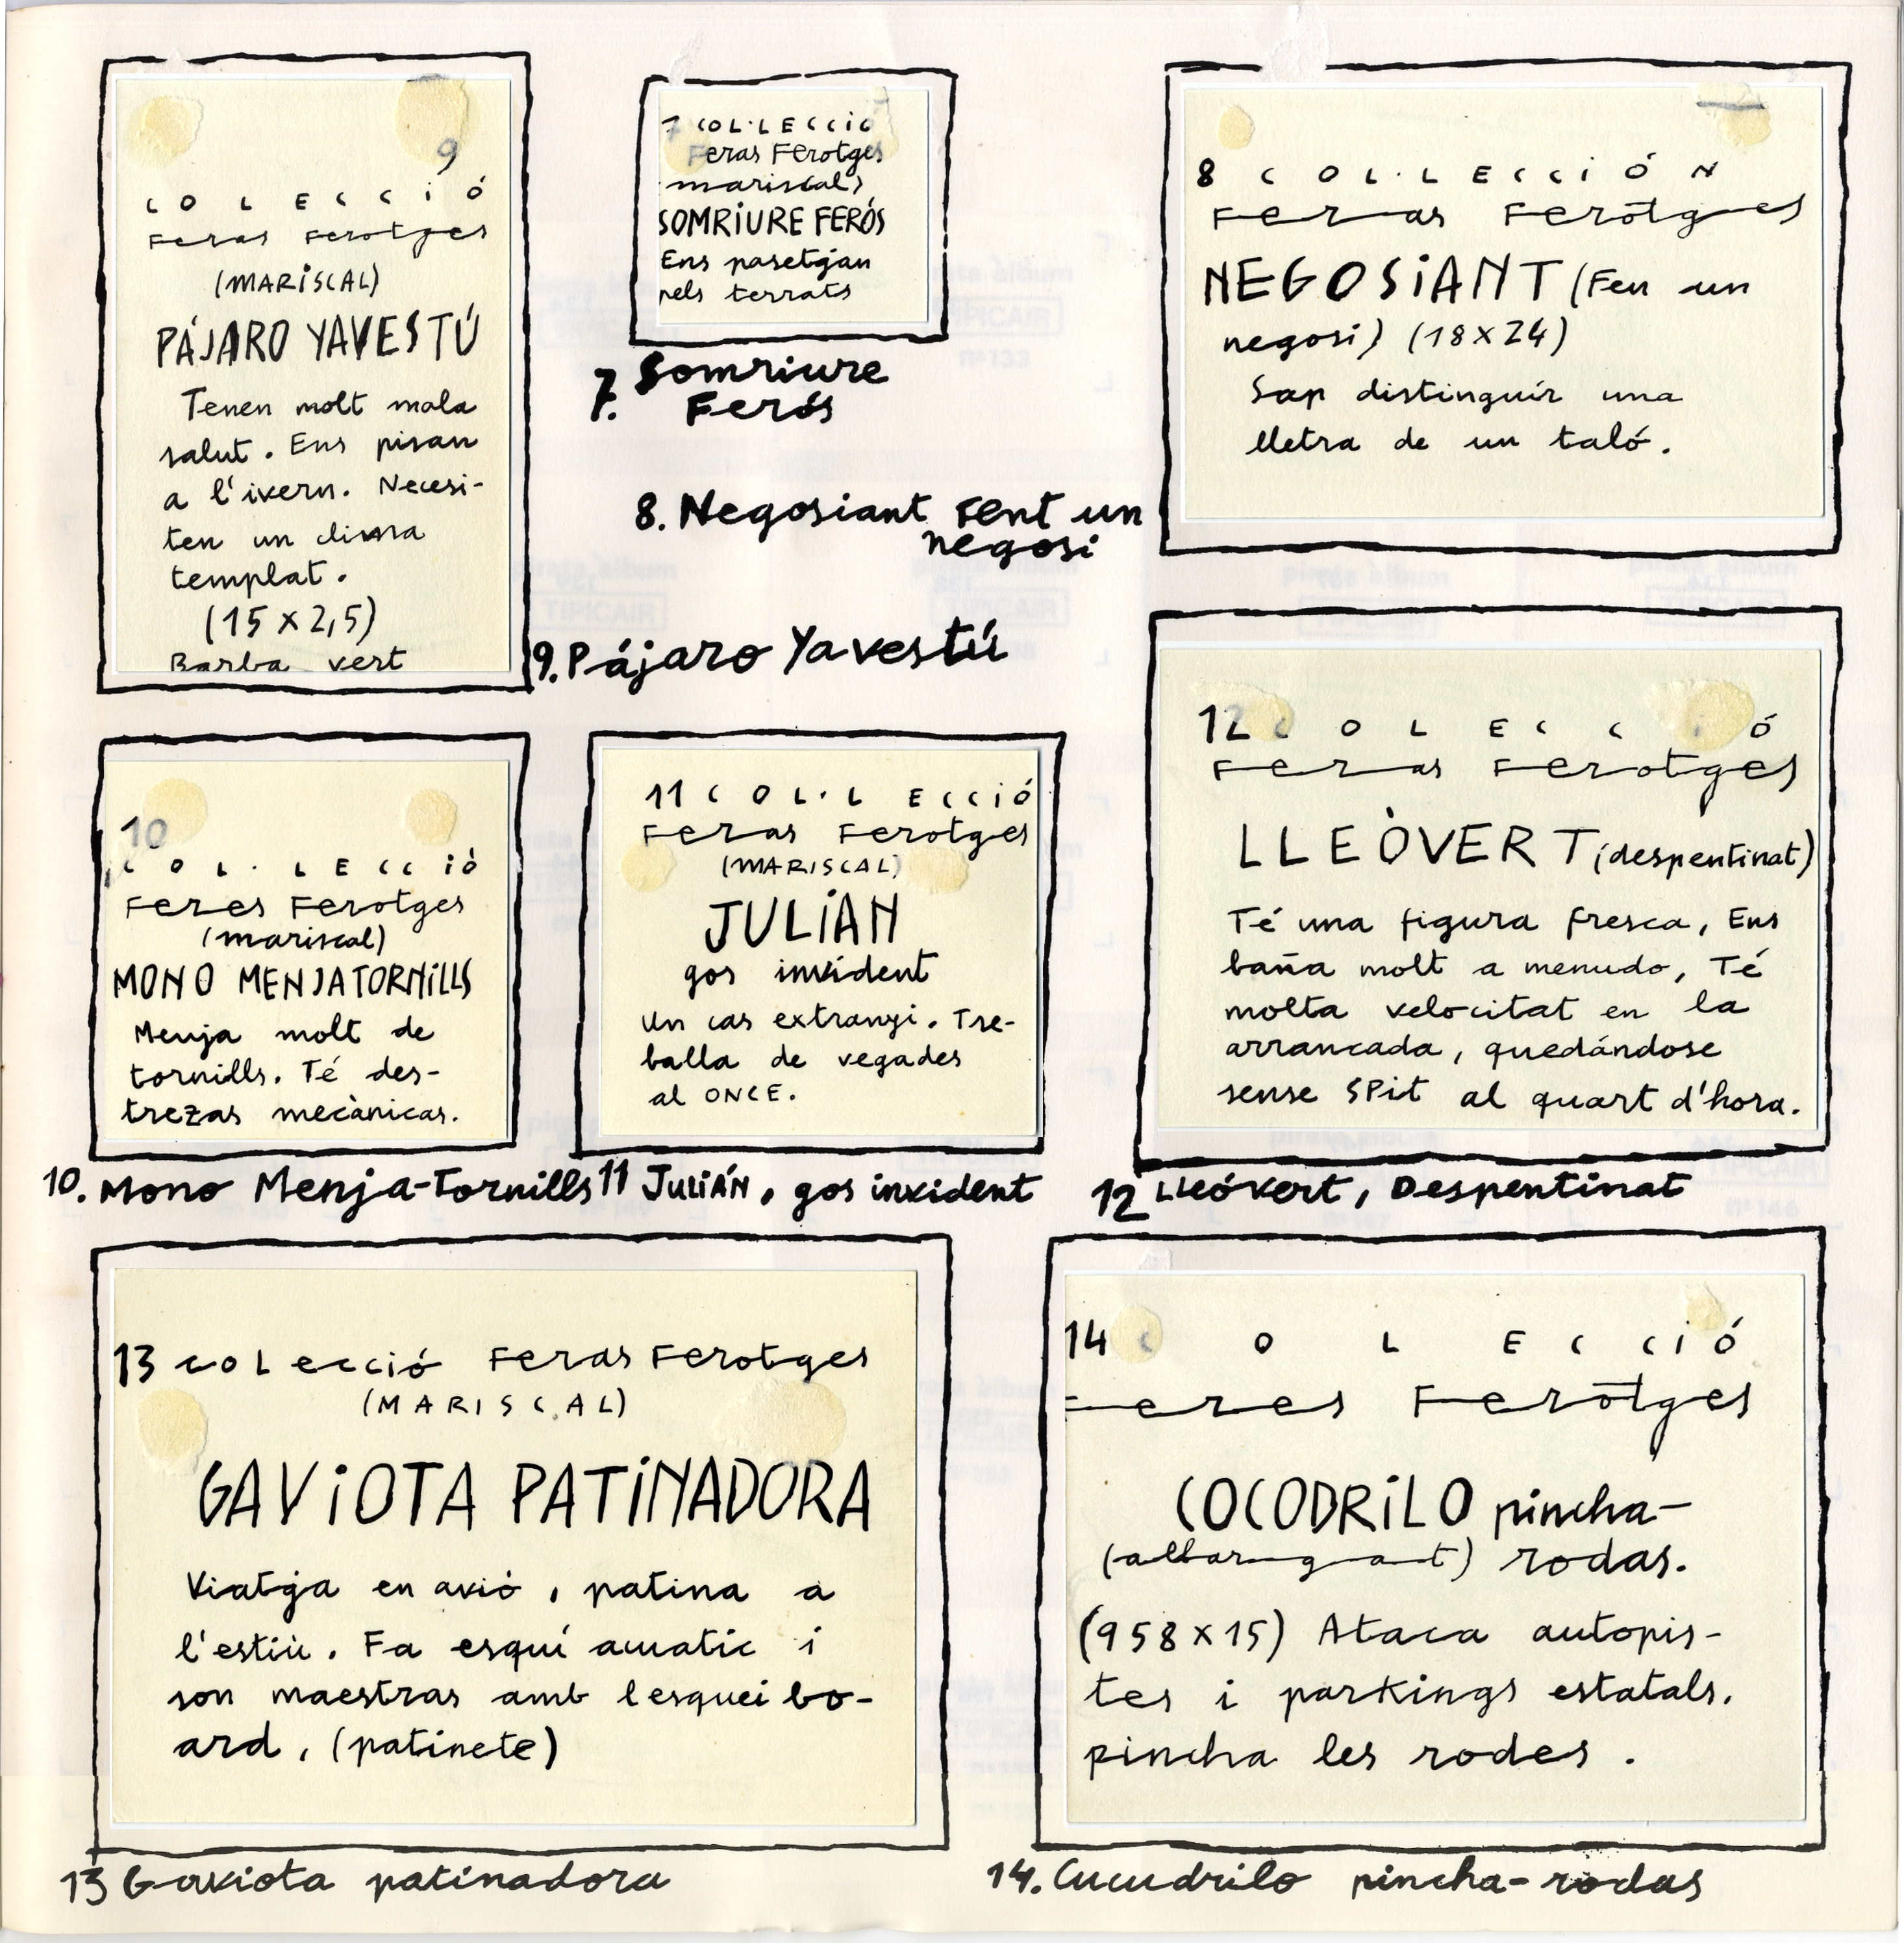 9
COLECCIÓ
Feras Ferotges
(MARISCAL)
PÁJARO YAVESTÚ
Tenen molt mala
salut. Ens pisan
a l'ivern. Necesi-
ten un clima
templat.
(15 x 2,5)
Barba vert
7 COL·LECCIÓ
Feras Ferotges
(mariscal)
SOMRIURE FERÓS
Ens pasetjan
pels terrats
7. Somriure
Ferós
8 COL·LECCIÓN
Feras Ferotges
NEGOSIANT (Fen un
negosi) (18 x 24)
Sap distinguir una
lletra de un taló.
8. Negosiant Fent un
negosi
9. Pájaro Yavestú
10
COL·LECCIÓ
Feres Ferotges
(mariscal)
MONO MENJATORNILLS
Menja molt de
tornills. Té des-
trezas mecànicas.
10. Mono Menja-Tornills
11 COL·LECCIÓ
Feras Ferotges
(MARISCAL)
JULIAN
gos invident
Un cas extranyi. Tre-
balla de vegades
al ONCE.
11 JULIÁN, gos invident
12 COLECCIÓ
Feras Ferotges
LLEÒVERT (despentinat)
Té una figura fresca, Ens
baña molt a menudo, Té
molta velocitat en la
arrancada, quedándose
sense SPit al quart d'hora.
12 Lleóvert, Despentinat
13 COLecció Feras Ferotges
(MARISCAL)
GAViOTA PATiNADORA
Viatja en avió, patina a
l'estiu. Fa esquí acuatic i
son maestras amb l'esquei bo-
ard, (patinete)
13 Gaviota patinadora
14 COLECCIÓ
Feres Ferotges
COCODRiLO pincha-
(allargat) rodas.
(958 x 15) Ataca autopis-
tes i parkings estatals.
pincha les rodes.
14. Cucudrilo pincha-rodas